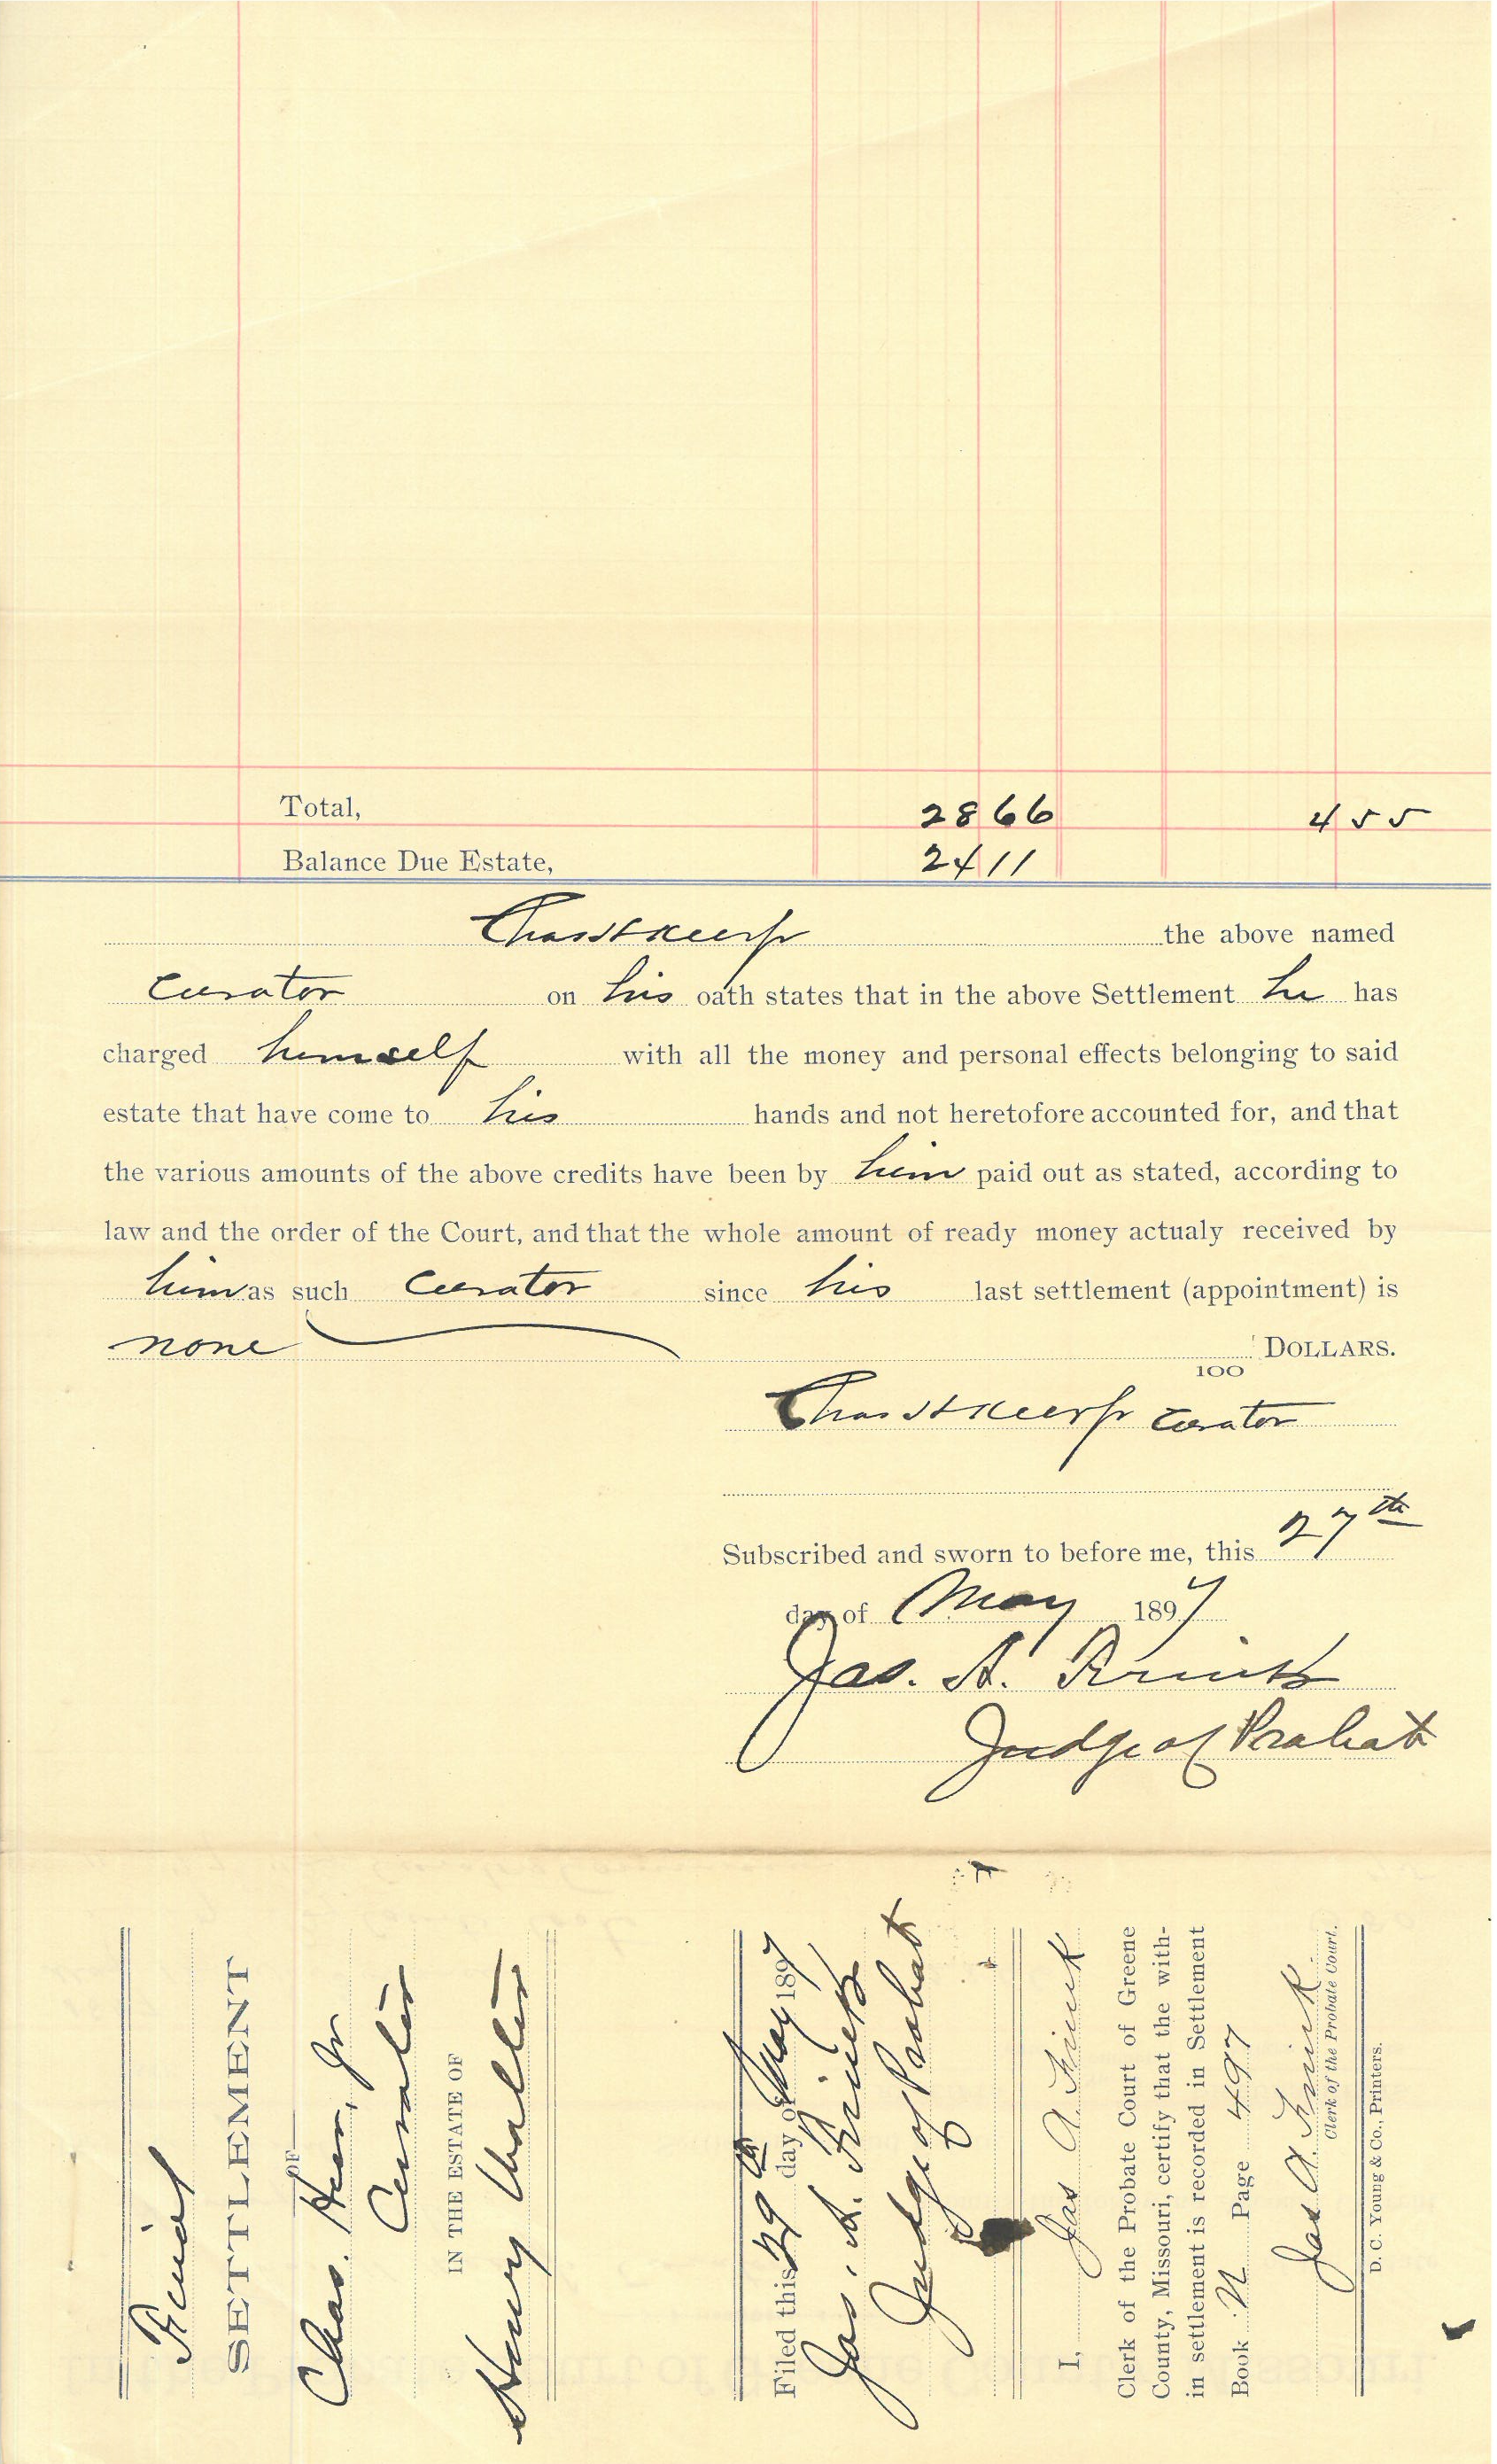 Total, 28 66 4 55
Balance Due Estate, 24 11
Chas H Heer Jr the above named
curator on his oath states that in the above Settlement he has
charged himself with all the money and personal effects belonging to said
estate that have come to his hands and not heretofore accounted for, and that
the various amounts of the above credits have been by him paid out as stated, according to
law and the order of the Court, and that the whole amount of ready money actualy received by
him as such curator since his last settlement (appointment) is
none 100 DOLLARS.
Chas H Heer Jr curator
Subscribed and sworn to before me, this 27th
day of May 1897
Jas. A. Frink
Judge of Probate
Final
SETTLEMENT
OF
Chas. Heer, Jr
Curator
IN THE ESTATE OF
Henry
Filed this 29th day of May 1897
Jas. A. Frink
Judge of Probate
I, Jas A Frink
Clerk of the Probate Court of Greene
County, Missouri, certify that the with-
in settlement is recorded in Settlement
Book N Page 497
Jas A. Frink
Clerk of the Probate Court.
D. C. Young & Co., Printers.